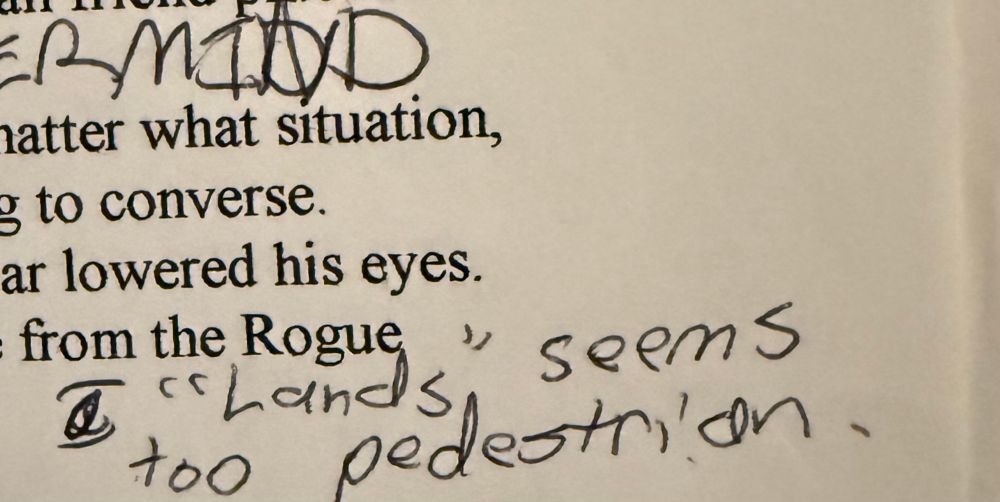 ERMIND
matter what situation,
g to converse.
ar lowered his eyes.
from the Rogue
"Lands," seems
too pedestrian.